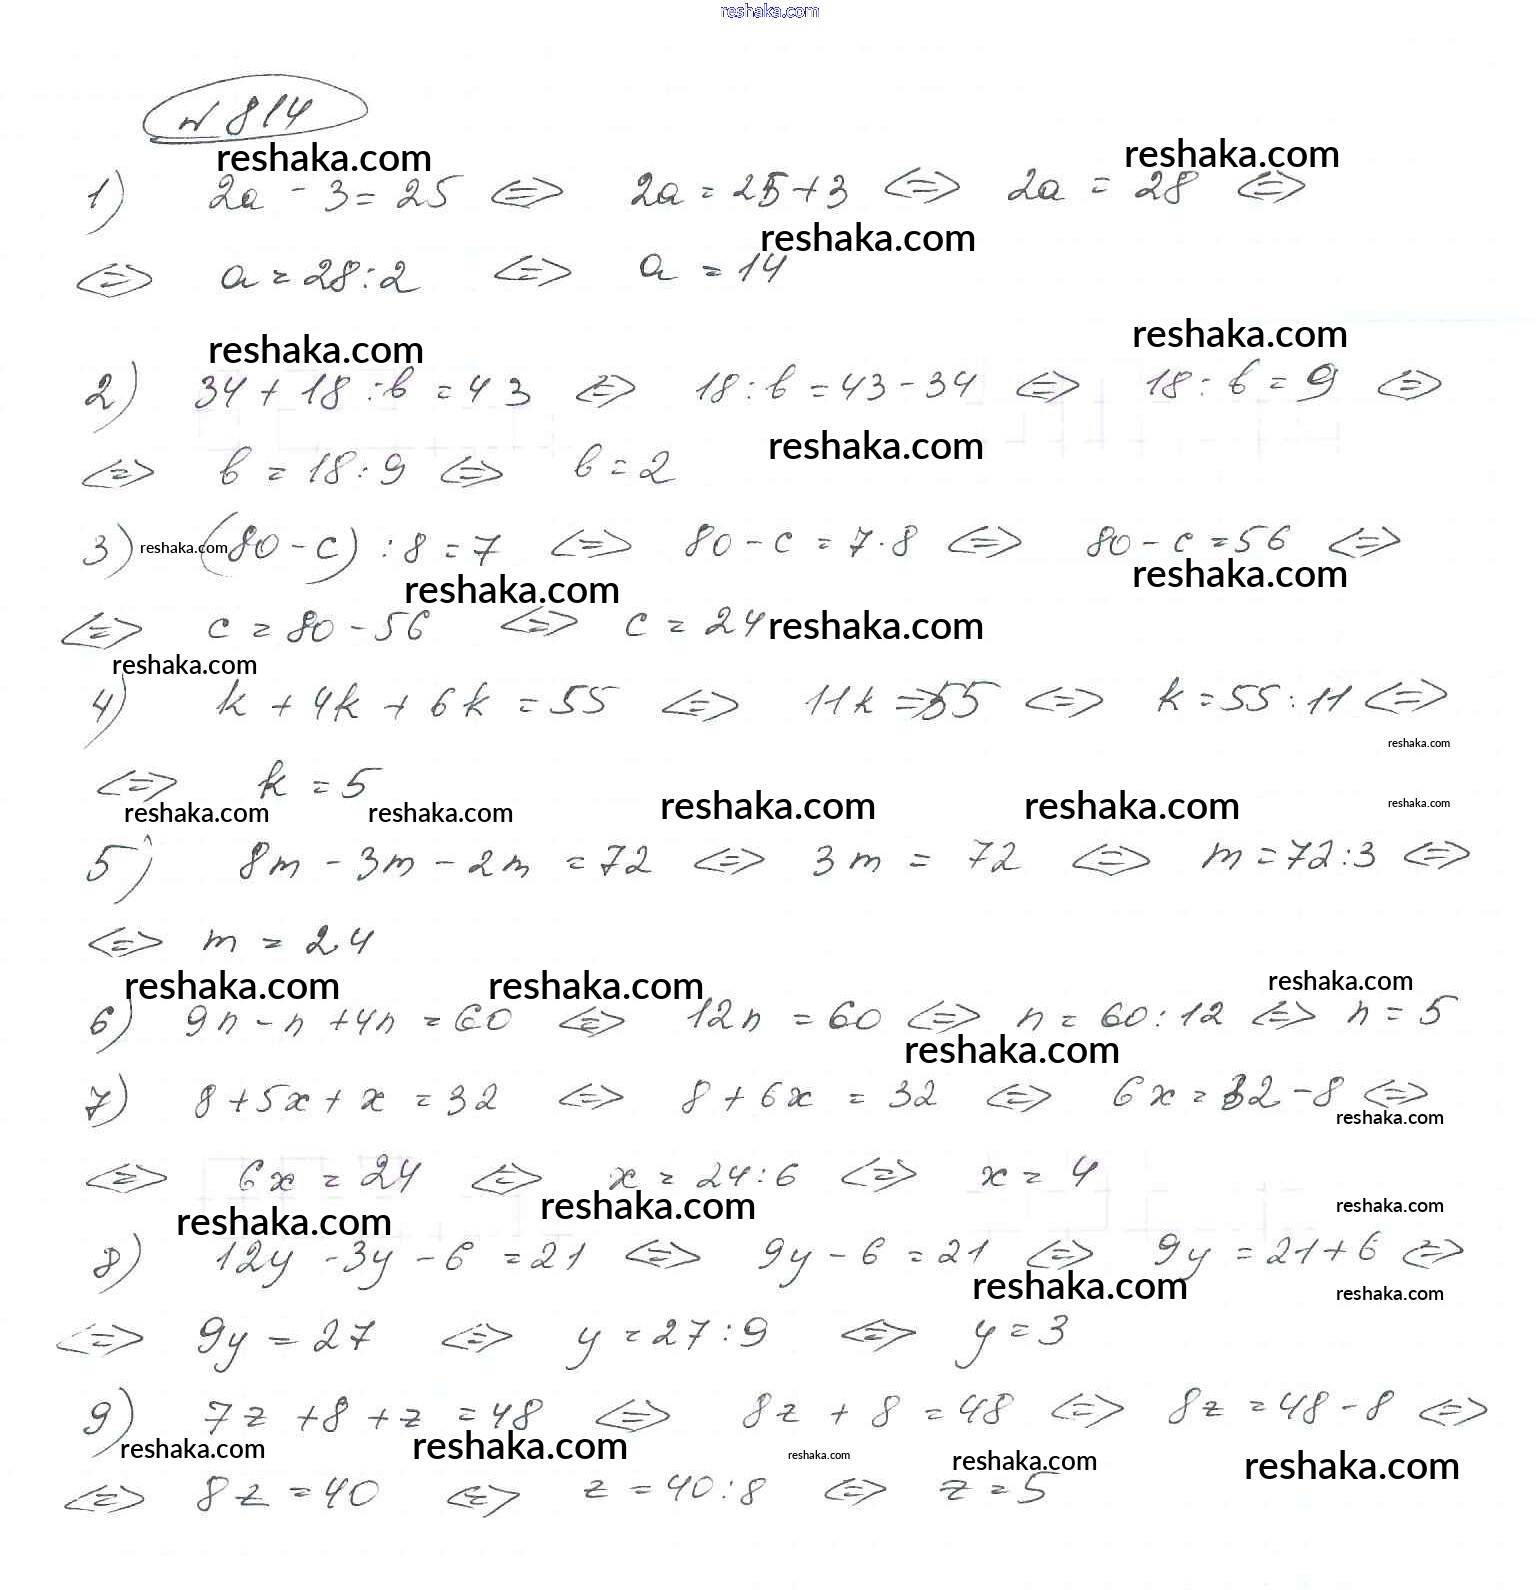 reshaka.com
N 814
reshaka.com reshaka.com
1) 2a - 3 = 25 <=> 2a = 25 + 3 <=> 2a = 28 <=>
reshaka.com
<=> a = 28 : 2 <=> a = 14
reshaka.com reshaka.com
2) 34 + 18 : b = 43 <=> 18 : b = 43 - 34 <=> 18 : b = 9 <=>
reshaka.com
<=> b = 18 : 9 <=> b = 2
3) reshaka.com (80 - c) : 8 = 7 <=> 80 - c = 7 · 8 <=> 80 - c = 56 <=>
reshaka.com reshaka.com
<=> c = 80 - 56 <=> c = 24 reshaka.com
reshaka.com
4) k + 4k + 6k = 55 <=> 11k = 55 <=> k = 55 : 11 <=>
reshaka.com
<=> k = 5
reshaka.com reshaka.com reshaka.com reshaka.com reshaka.com
5) 8m - 3m - 2m = 72 <=> 3m = 72 <=> m = 72 : 3 <=>
<=> m = 24
reshaka.com reshaka.com reshaka.com
6) 9n - n + 4n = 60 <=> 12n = 60 <=> n = 60 : 12 <=> n = 5
reshaka.com
7) 8 + 5x + x = 32 <=> 8 + 6x = 32 <=> 6x = 32 - 8 <=>
reshaka.com
<=> 6x = 24 <=> x = 24 : 6 <=> x = 4
reshaka.com reshaka.com reshaka.com
8) 12y - 3y - 6 = 21 <=> 9y - 6 = 21 <=> 9y = 21 + 6 <=>
reshaka.com reshaka.com
<=> 9y = 27 <=> y = 27 : 9 <=> y = 3
9) 7z + 8 + z = 48 <=> 8z + 8 = 48 <=> 8z = 48 - 8 <=>
reshaka.com reshaka.com reshaka.com reshaka.com reshaka.com
<=> 8z = 40 <=> z = 40 : 8 <=> z = 5